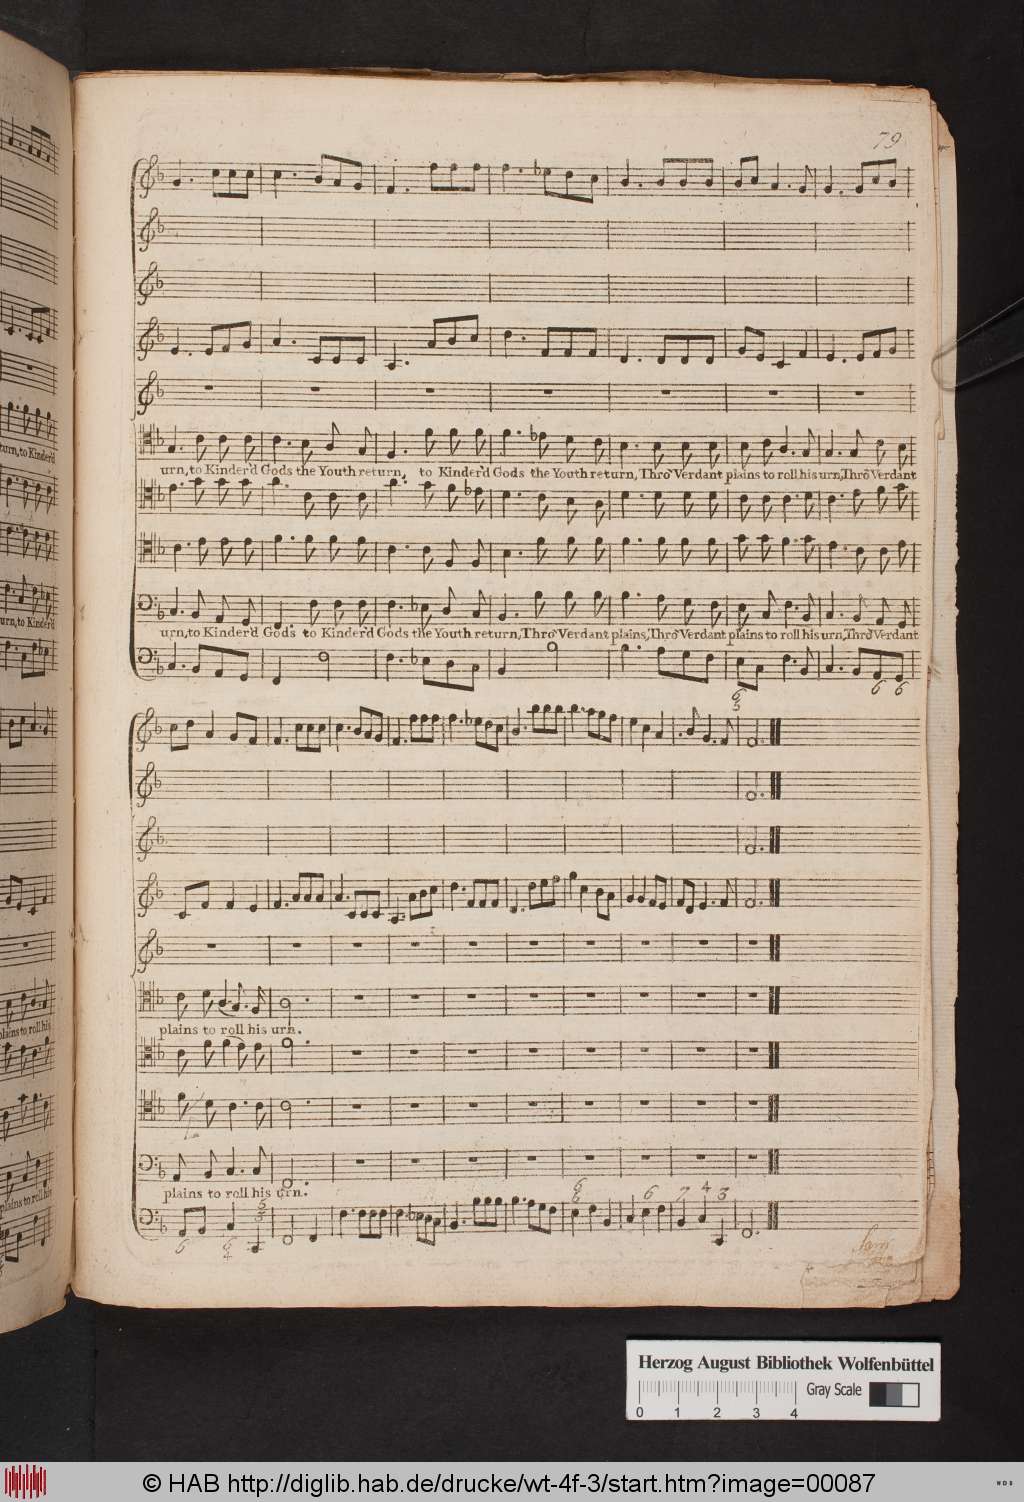 79
turn, to Kinder'd
urn, to Kinder'd Gods the Youth return, to Kinder'd Gods the Youth return, Thro' Verdant plains to roll his urn, Thro' Verdant
urn, to Kinder'd
urn, to Kinder'd Gods to Kinder'd Gods the Youth return, Thro' Verdant plains, Thro' Verdant plains to roll his urn, Thro' Verdant
6 5 6 6
plains to roll his
plains to roll his urn.
plains to roll his
plains to roll his urn.
6 6 7 4 3
6 6 4
Herzog August Bibliothek Wolfenbüttel
Gray Scale
0 1 2 3 4
© HAB http://diglib.hab.de/drucke/wt-4f-3/start.htm?image=00087